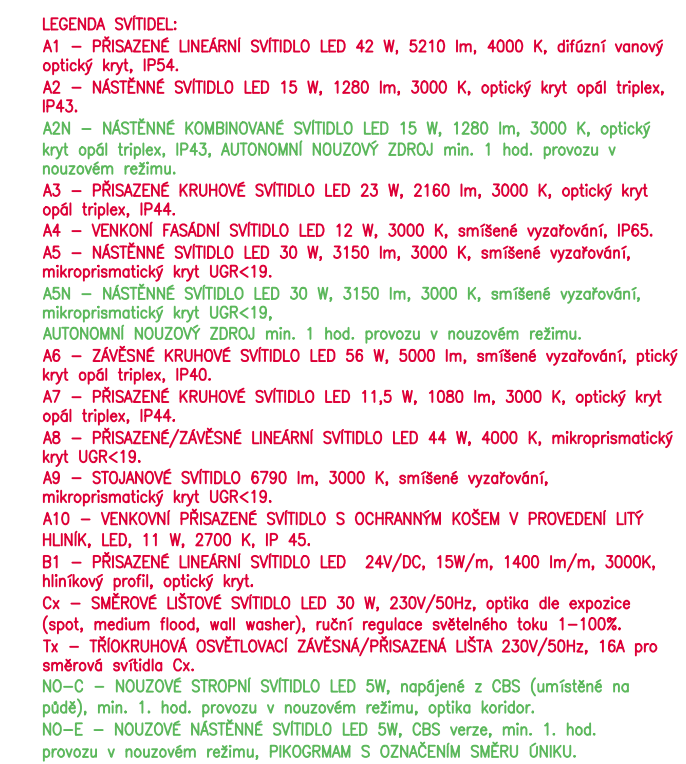 LEGENDA SVÍTIDEL:
A1 – PŘISAZENÉ LINEÁRNÍ SVÍTIDLO LED 42 W, 5210 lm, 4000 K, difúzní vanový
optický kryt, IP54.
A2 – NÁSTĚNNÉ SVÍTIDLO LED 15 W, 1280 lm, 3000 K, optický kryt opál triplex,
IP43.
A2N – NÁSTĚNNÉ KOMBINOVANÉ SVÍTIDLO LED 15 W, 1280 lm, 3000 K, optický
kryt opál triplex, IP43, AUTONOMNÍ NOUZOVÝ ZDROJ min. 1 hod. provozu v
nouzovém režimu.
A3 – PŘISAZENÉ KRUHOVÉ SVÍTIDLO LED 23 W, 2160 lm, 3000 K, optický kryt
opál triplex, IP44.
A4 – VENKONÍ FASÁDNÍ SVÍTIDLO LED 12 W, 3000 K, smíšené vyzařování, IP65.
A5 – NÁSTĚNNÉ SVÍTIDLO LED 30 W, 3150 lm, 3000 K, smíšené vyzařování,
mikroprismatický kryt UGR<19.
A5N – NÁSTĚNNÉ SVÍTIDLO LED 30 W, 3150 lm, 3000 K, smíšené vyzařování,
mikroprismatický kryt UGR<19,
AUTONOMNÍ NOUZOVÝ ZDROJ min. 1 hod. provozu v nouzovém režimu.
A6 – ZÁVĚSNÉ KRUHOVÉ SVÍTIDLO LED 56 W, 5000 lm, smíšené vyzařování, ptický
kryt opál triplex, IP40.
A7 – PŘISAZENÉ KRUHOVÉ SVÍTIDLO LED 11,5 W, 1080 lm, 3000 K, optický kryt
opál triplex, IP44.
A8 – PŘISAZENÉ/ZÁVĚSNÉ LINEÁRNÍ SVÍTIDLO LED 44 W, 4000 K, mikroprismatický
kryt UGR<19.
A9 – STOJANOVÉ SVÍTIDLO 6790 lm, 3000 K, smíšené vyzařování,
mikroprismatický kryt UGR<19.
A10 – VENKOVNÍ PŘISAZENÉ SVÍTIDLO S OCHRANNÝM KOŠEM V PROVEDENÍ LITÝ
HLINÍK, LED, 11 W, 2700 K, IP 45.
B1 – PŘISAZENÉ LINEÁRNÍ SVÍTIDLO LED  24V/DC, 15W/m, 1400 lm/m, 3000K,
hliníkový profil, optický kryt.
Cx – SMĚROVÉ LIŠTOVÉ SVÍTIDLO LED 30 W, 230V/50Hz, optika dle expozice
(spot, medium flood, wall washer), ruční regulace světelného toku 1–100%.
Tx – TŘÍOKRUHOVÁ OSVĚTLOVACÍ ZÁVĚSNÁ/PŘISAZENÁ LIŠTA 230V/50Hz, 16A pro
směrová svítidla Cx.
NO–C – NOUZOVÉ STROPNÍ SVÍTIDLO LED 5W, napájené z CBS (umístěné na
půdě), min. 1. hod. provozu v nouzovém režimu, optika koridor.
NO–E – NOUZOVÉ NÁSTĚNNÉ SVÍTIDLO LED 5W, CBS verze, min. 1. hod.
provozu v nouzovém režimu, PIKOGRMAM S OZNAČENÍM SMĚRU ÚNIKU.